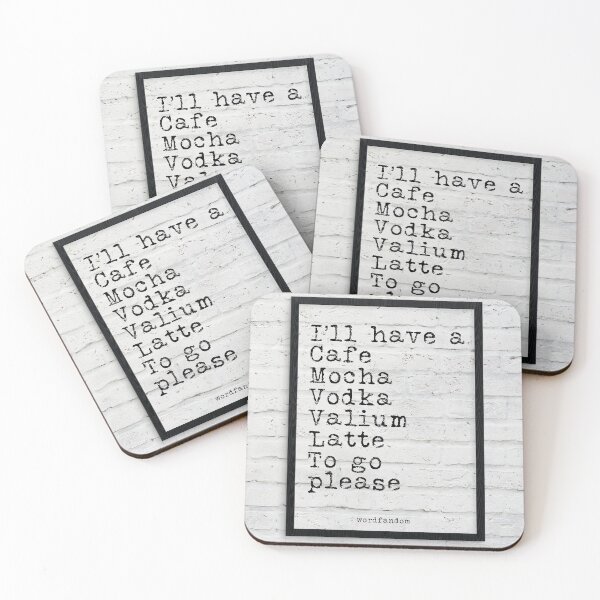 I'll have a
Cafe
Mocha
Vodka
I'll have a
Cafe
Mocha
Vodka
Valium
Latte
To go
I'll have a
Cafe
Mocha
Vodka
Valium
Latte
To go
please
I'll have a
Cafe
Mocha
Vodka
Valium
Latte
To go
please
wordfandom